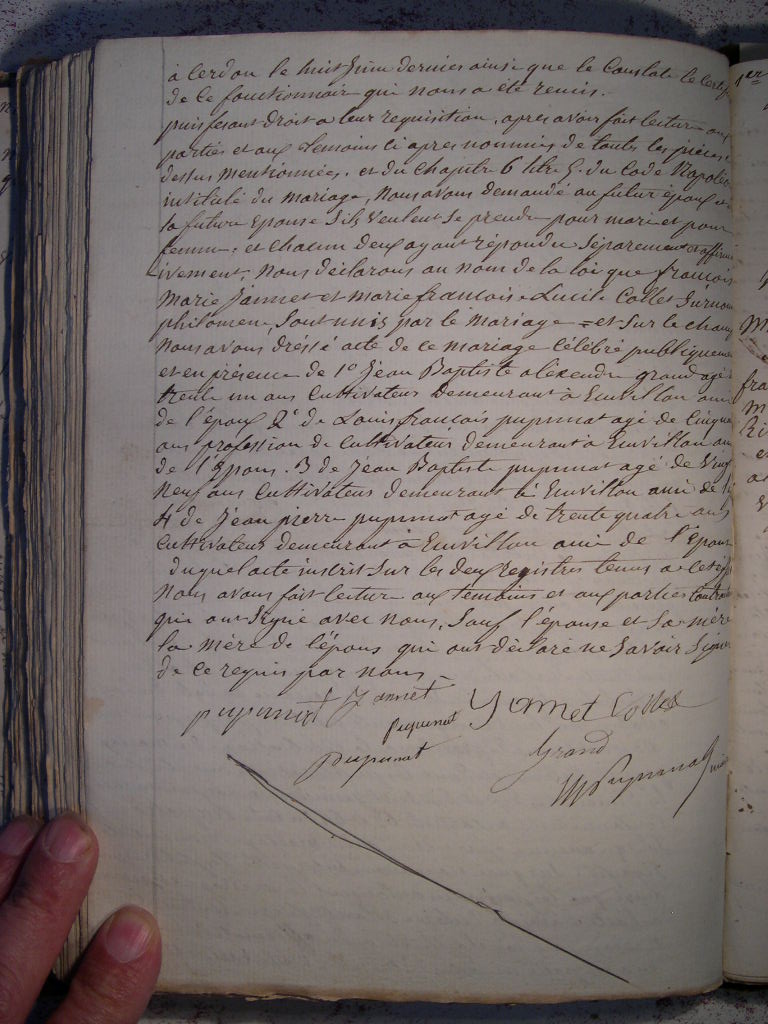 à Cerdon le huit Juin dernier ainsi que le Constate le Certif
de Ce fonctionnair qui nous a été remis.
puis fesant droit a leur requisition, apres avoir fait lecture aux
parties et aux temoins ci apres nommés de toutes les pièces
dessus mentionnées, et du Chapitre 6 titre 5. du Code Napoléo
intitulé du mariage, Nous avons demandé au futur époux et
la future Epouse s'ils veulent se prendre pour mari et pour
femme, et chacun deux ayant répondu séparement et affirm
ivement, Nous déclarons au nom de la loi que francois
Marie Jannet et marie francoise Lucile Collet Surnom
philomene Sont unis par le Mariage = et Sur le champ
Nous avons dréssé acte de ce mariage Célébré publiqueme
et en présence de 1º Jéan Baptiste aléxendre grand agé
trente un ans Cultivateur demeurant à Emvillon ami
de l'époux 2º de Louis francois pupunat agé de Cinqua
ans profession de Cultivateur demeurant à Emvillon am
de l'Epoux. 3 de Jéan Baptiste pupunat agé de Vingt
Neuf ans Cultivateur demeurant à Emvillon ami de l'é
4 de Jéan pierre pupunat agé de trente quatre ans
Cultivateur demeurant à Emvillon ami de l'époux
duquel acte inscrit Sur les deux registres tenus a cet éf
Nous avons fait lecture aux temoins et aux parties
qui ont Signé avec nous, Sauf l'épouse et Sa mère
la Mère de l'époux qui ont déclaré ne Savoir Signer
de ce requis par nous.
pupunat Jannet
pupunat Jannet Collet
pupunat Grand
Pupunat